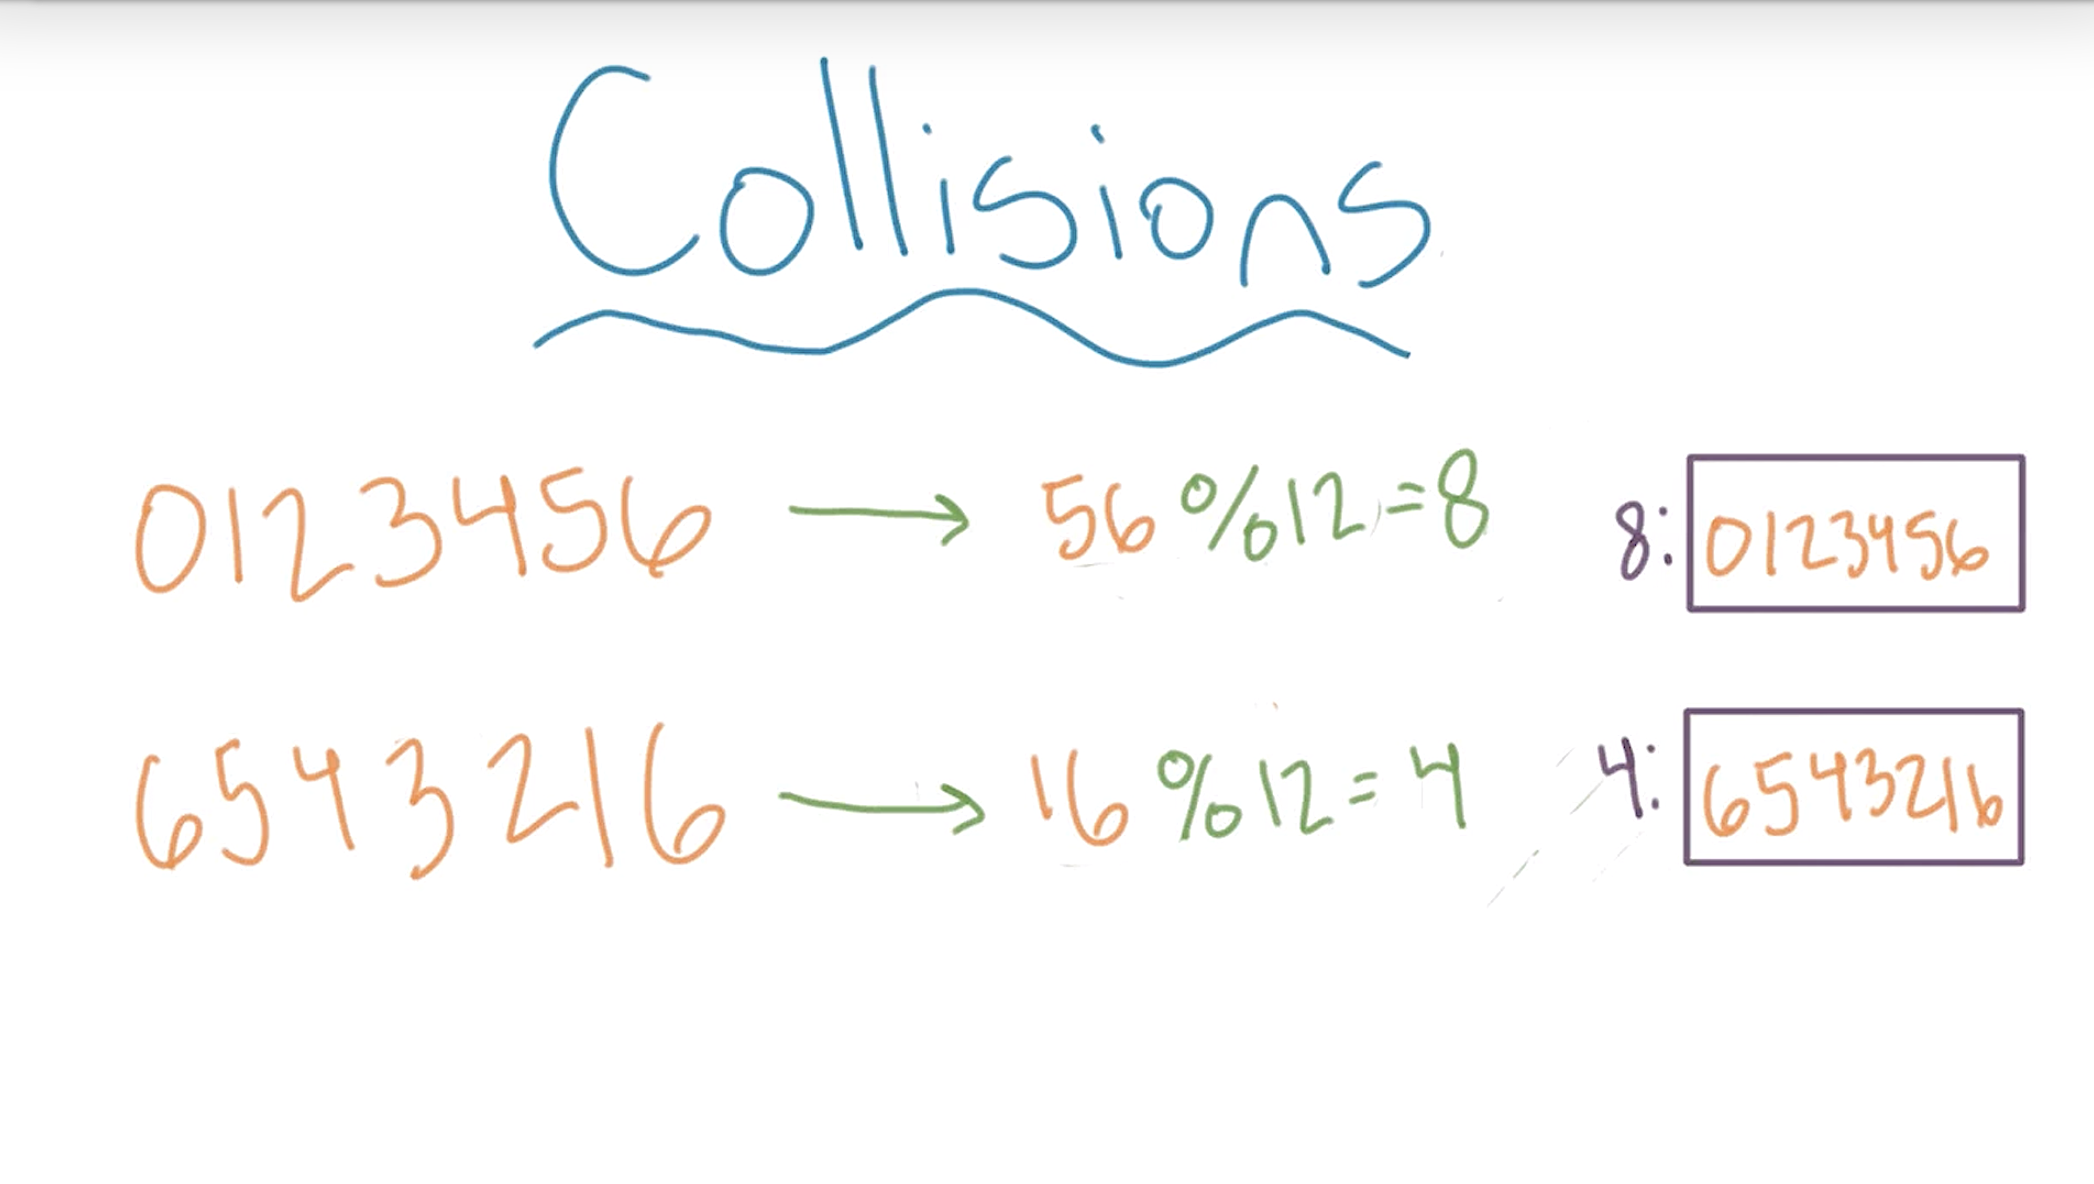 Collisions
0123456 → 56 % 12 = 8 8: 0123456
6543216 → 16 % 12 = 4 4: 6543216